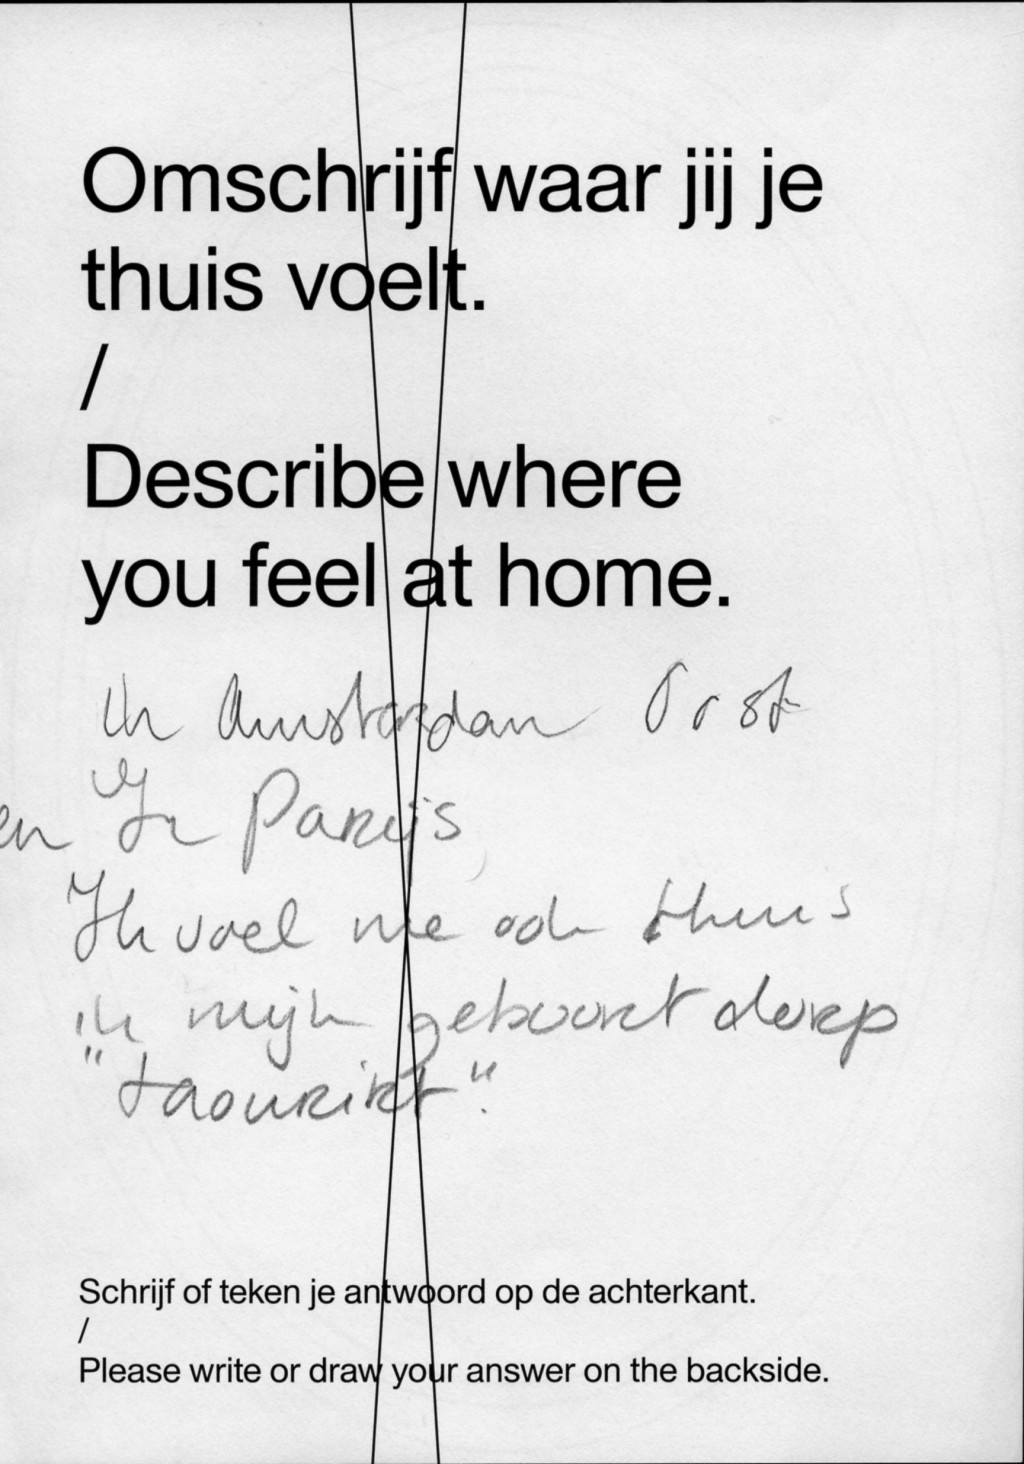 Omschrijf waar jij je
thuis voelt.
/
Describe where
you feel at home.
In Amsterdam Oost
en In Parijs
Ik voel me ook thuis
in mijn geboort dorp
"taourirt".
Schrijf of teken je antwoord op de achterkant.
/
Please write or draw your answer on the backside.